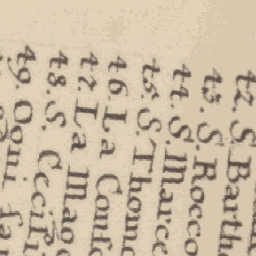 42. S. Barth
43. S. Rocco
44. S. Marce
45. S. Thoma
46 La Conf
47. La Mag
48. S. Cecili
49. Ogni sa